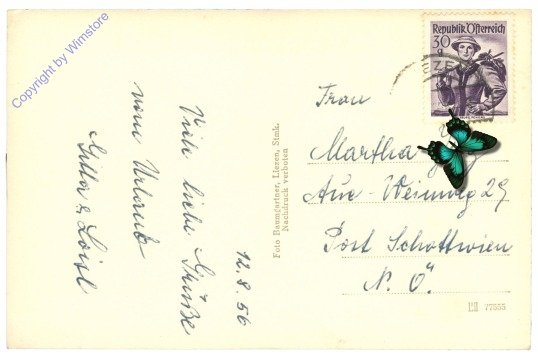 Copyright by Wimstore
12.8.56
Viele liebe Grüße
vom Urlaub
Republik Österreich
30 g
Frau
Martha
Aue-Weinweg 29
Post Schottwien
N.Ö.
Foto Baumgartner, Liezen, Stmk.
Nachdruck verboten
77555